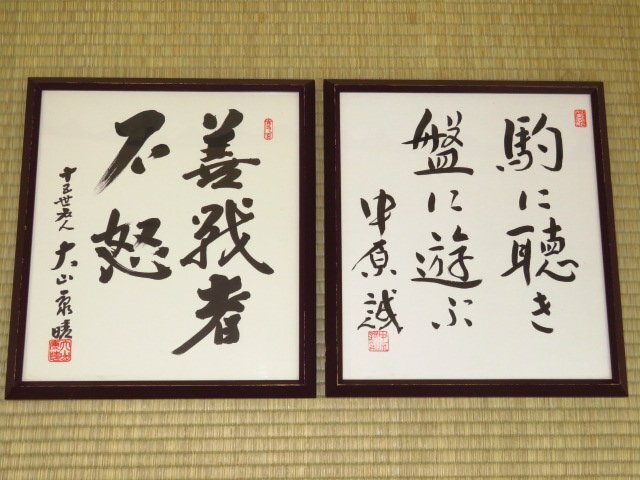 駒に聴き
盤に遊ぶ
中原誠
善戦者
不怒
十五世名人 大山康晴